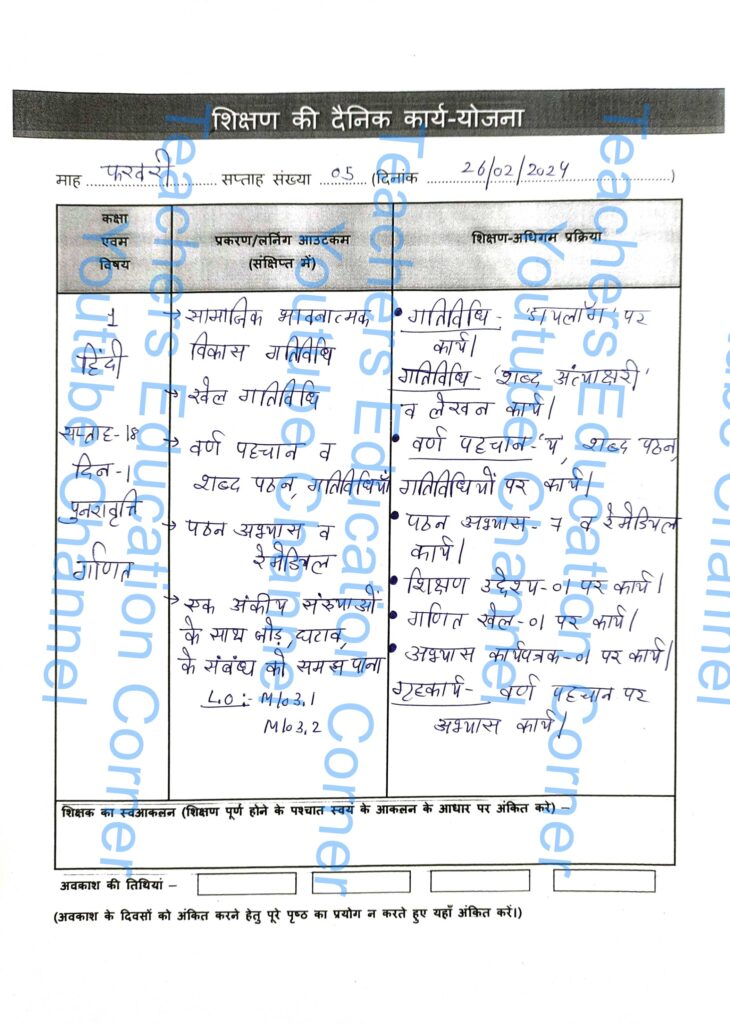 शिक्षण की दैनिक कार्य-योजना
माह फरवरी सप्ताह संख्या 05 (दिनांक 26/02/2024)
कक्षा
एवम
विषय
प्रकरण/लर्निंग आउटकम
(संक्षिप्त में)
शिक्षण-अधिगम प्रक्रिया
1
हिंदी
सप्ताह-18
दिन-1
पुनरावृत्ति
गणित
→ सामाजिक भावनात्मक
विकास गतिविधि
→ खेल गतिविधि
→ वर्ण पहचान व
शब्द पठन, गतिविधियाँ
→ पठन अभ्यास व
रेमेडियल
→ एक अंकीय संख्याओं
के साथ जोड़, घटाव,
के संबंध को समझ पाना
L.O :- M103.1
M103.2
• गतिविधि - 'डायलॉग' पर
कार्य।
गतिविधि - 'शब्द अंत्याक्षरी'
व लेखन कार्य।
• वर्ण पहचान - 'य', शब्द पठन,
गतिविधियों पर कार्य।
• पठन अभ्यास - 7 व रेमेडियल
कार्य।
• शिक्षण उद्देश्य-01 पर कार्य।
• गणित खेल-01 पर कार्य।
• अभ्यास कार्यपत्रक-01 पर कार्य।
गृहकार्य - वर्ण पहचान पर
अभ्यास कार्य।
शिक्षक का स्वआकलन (शिक्षण पूर्ण होने के पश्चात स्वयं के आकलन के आधार पर अंकित करे) –
अवकाश की तिथियां –
(अवकाश के दिवसों को अंकित करने हेतु पूरे पृष्ठ का प्रयोग न करते हुए यहाँ अंकित करें।)
Teachers Education Corner
Youtube Channel
Teachers Education Corner
Youtube Channel
Teachers Education Corner
Youtube Channel